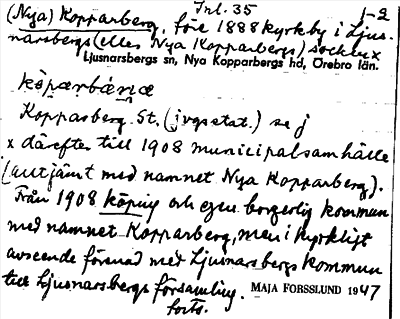 Frl. 35 1-2
(Nya) Kopparberg, före 1888 kyrkby i Ljus-
narsbergs (eller Nya Kopparbergs) socken x
Ljusnarsbergs sn, Nya Kopparbergs hd, Örebro län.
köpærbǽnæ
Kopparberg St. (jvgsstat.) se j
x därefter till 1908 municipalsamhälle
(alltjämt med namnet Nya Kopparberg).
Från 1908 köping och egen borgerlig kommun
med namnet Kopparberg, men i kyrkligt
avseende förenad med Ljusnarsbergs kommun
till Ljusnarsbergs församling.
MAJA FORSSLUND 1947
forts.